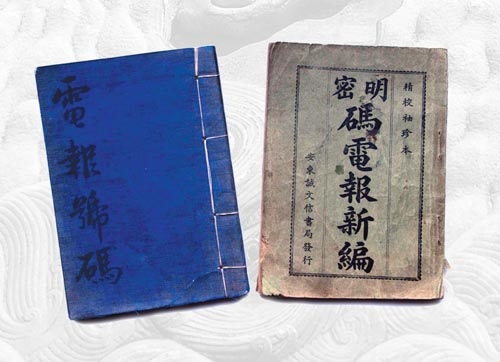 電報號碼
精校袖珍本
明密
碼電報新編
安東誠文信書局發行